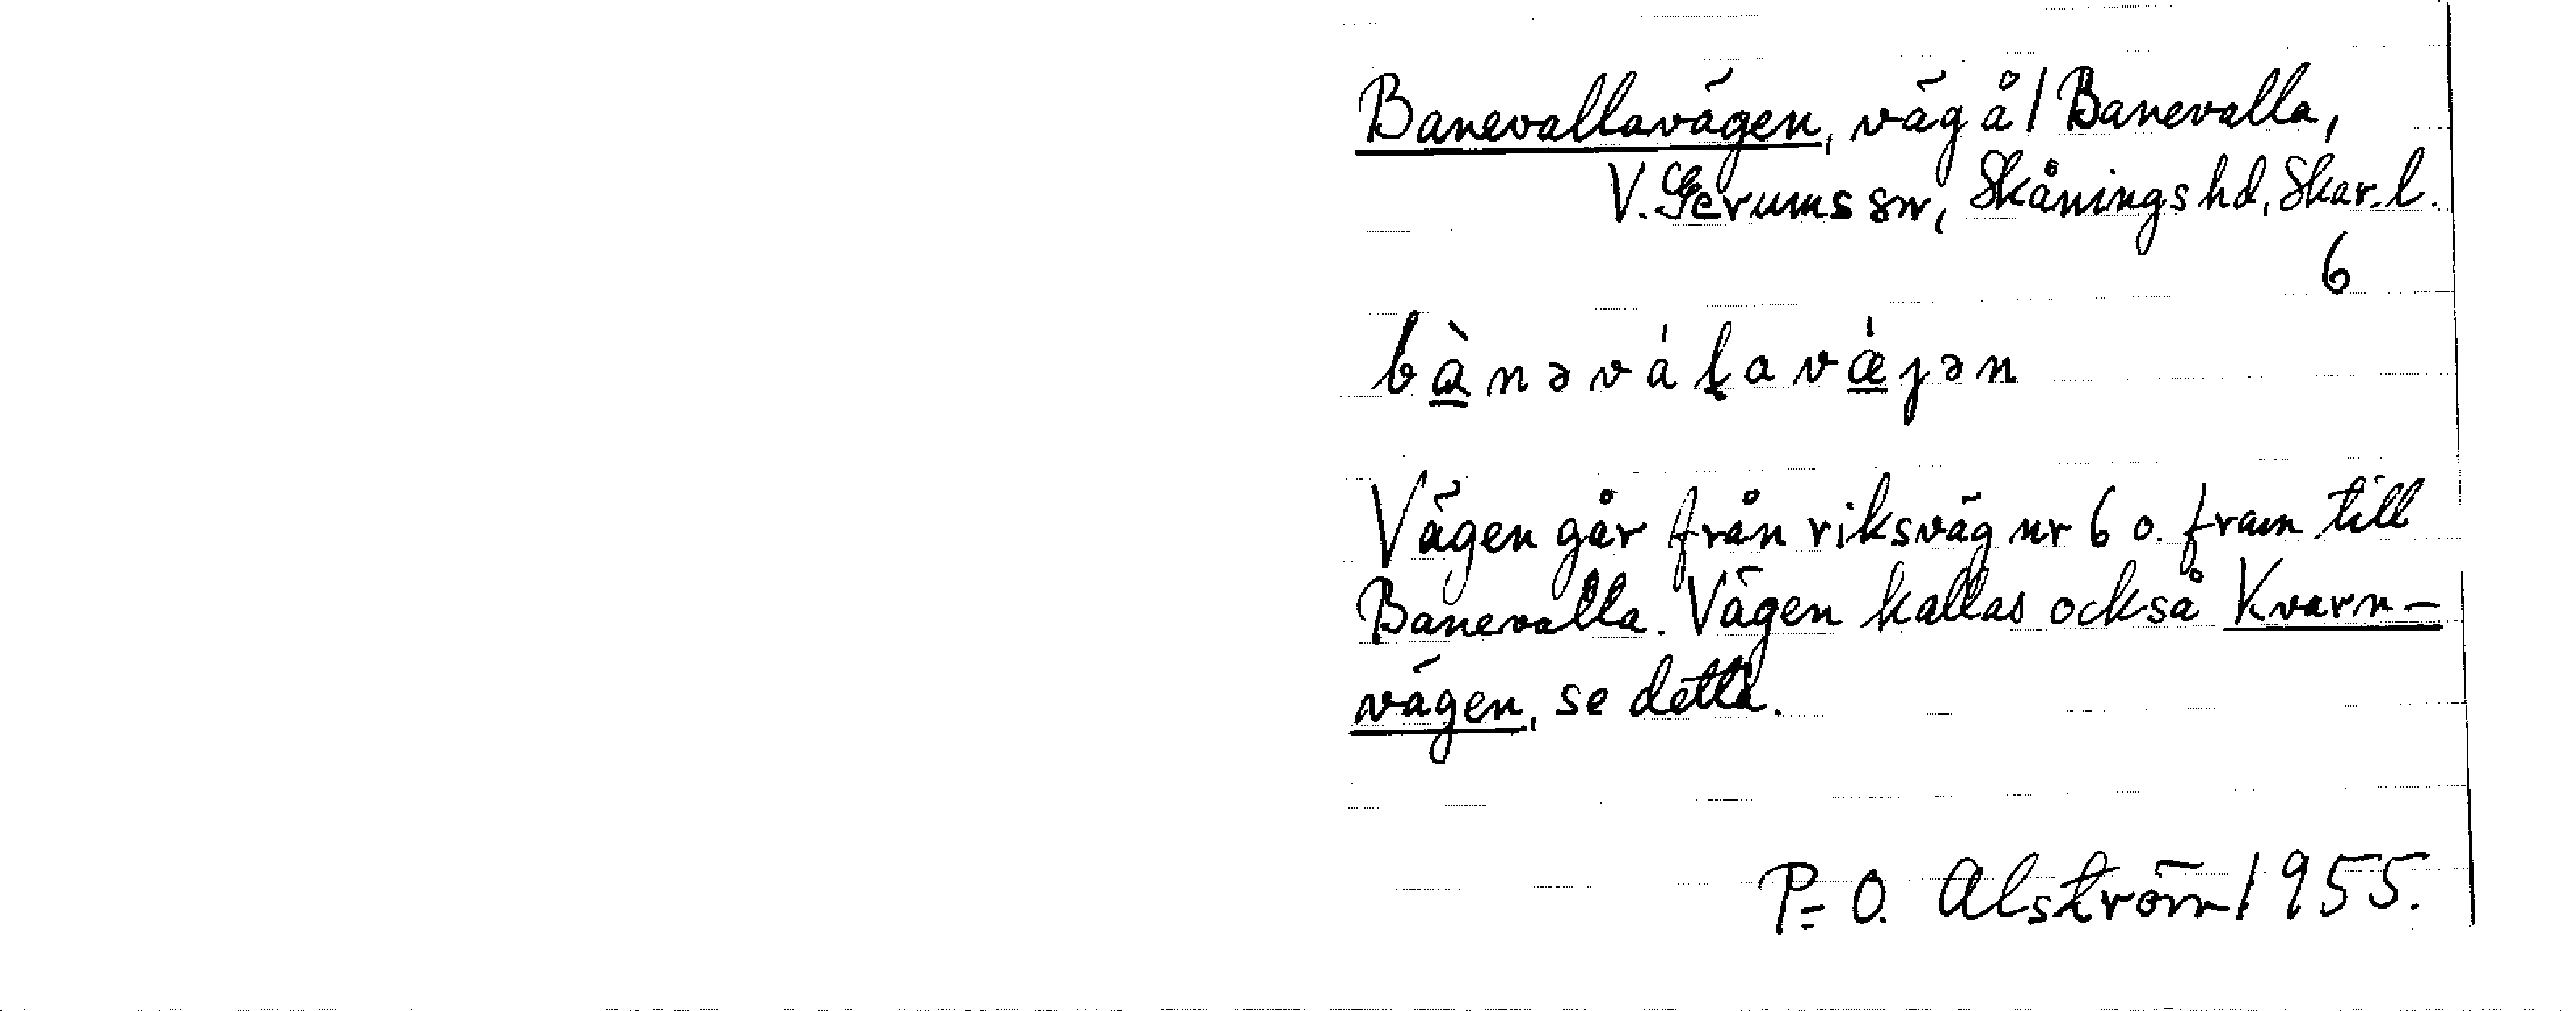 Banevallavägen, väg å/Banevalla,
V. Gerums sn, Skånings hd, Skar. l.
6
bànəváɫavǽjən
Vägen går från riksväg nr 6 o. fram till
Banevalla. Vägen kallas också Kvarn-
vägen, se detta.
P-O. Alström 1955.